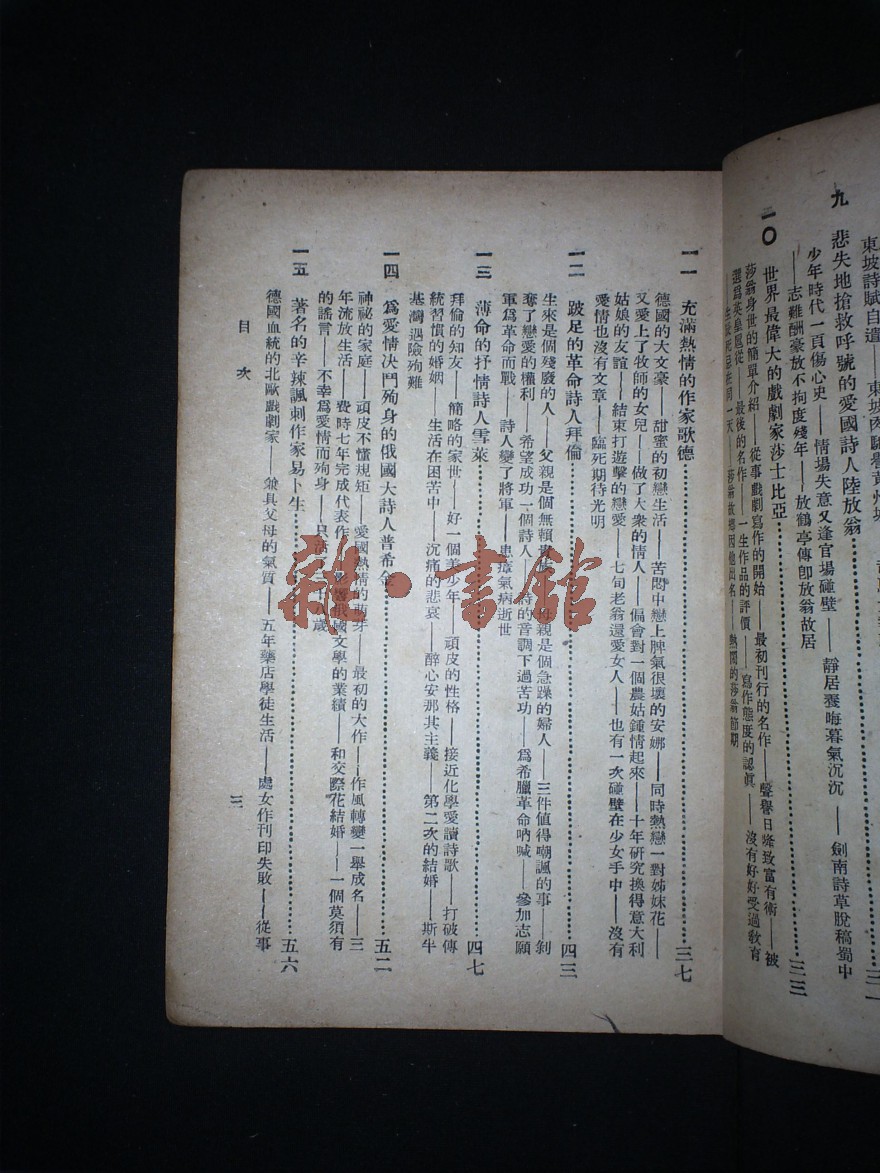 東坡詩賦自遣——東坡肉馳譽黃州城
九　悲失地搶救呼號的愛國詩人陸放翁
少年時代一頁傷心史——情場失意又逢官場碰壁——靜居養晦暮氣沉沉——劍南詩草脫稿蜀中
——志難酬豪放不拘度殘年——放鶴亭傳卽放翁故居
一〇　世界最偉大的戲劇家莎士比亞……三三
莎翁身世的簡單介紹——從事戲劇寫作的開始——最初刊行的名作——聲譽日隆致富有術——被
選爲英皇鳳從——最後的名作——一生作品的評價——寫作態度的認眞——沒有好好受過敎育
莎翁故鄉因他出名——熱鬧的莎翁節期
一一　充滿熱情的作家歌德……三七
德國的大文豪——甜蜜的初戀生活——苦悶中戀上脾氣很壞的安娜——同時熱戀一對姊妹花——
又愛上了牧師的女兒——做了大衆的情人——偏會對一個農姑鍾情起來——十年研究換得意大利
姑娘的友誼——結束打遊擊的戀愛——七旬老翁還愛女人——也有一次碰壁在少女手中——沒有
愛情也沒有文章——臨死期待光明
一二　跛足的革命詩人拜倫……四三
生來是個殘廢的人——父親是個無賴貴族——母親是個急躁的婦人——三件值得嘲諷的事——剝
奪了戀愛的權利——希望成功一個詩人——詩的音調下過苦功——爲希臘革命吶喊——參加志願
軍爲革命而戰——詩人變了將軍——患瘧氣病逝世
一三　薄命的抒情詩人雪萊……四七
拜倫的知友——簡略的家世——好一個美少年——頑皮的性格——接近化學愛讀詩歌——打破傳
統習慣的婚姻——生活在困苦中——沉痛的悲哀——醉心安那其主義——第二次的結婚——斯牛
基灣遇險殉難
一四　爲愛情決鬥殉身的俄國大詩人普希金……五二
神祕的家庭——頑皮不懂規矩——愛國熱情的萌芽——最初的大作——作風轉變一舉成名——三
年流放生活——費時七年完成代表作——影響俄國文學的業績——和交際花結婚——一個莫須有
的謠言——不幸爲愛情而殉身——只活了三十八歲
一五　著名的辛辣諷刺作家易卜生……五六
德國血統的北歐戲劇家——兼具父母的氣質——五年藥店學徒生活——處女作刊印失敗——從事
目次
三
雜·書館